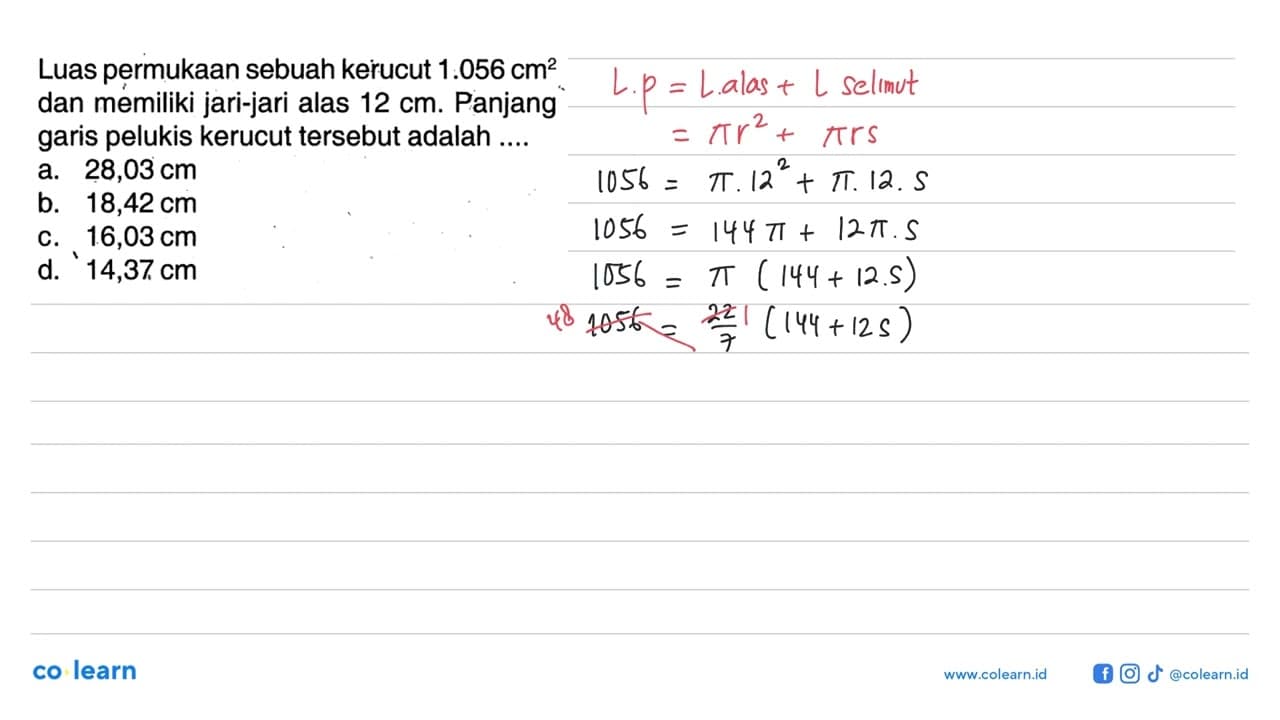 Luas permukaan sebuah kerucut 1.056 cm²
dan memiliki jari-jari alas 12 cm. Panjang
garis pelukis kerucut tersebut adalah ....
a. 28,03 cm
b. 18,42 cm
c. 16,03 cm
d. 14,37 cm
L.p = L.alas + L selimut
= πr² + πrs
1056 = π.12² + π.12.s
1056 = 144π + 12π.s
1056 = π (144 + 12.s)
48 1056 = 22/7 1 (144 + 12s)
co learn
www.colearn.id
@colearn.id